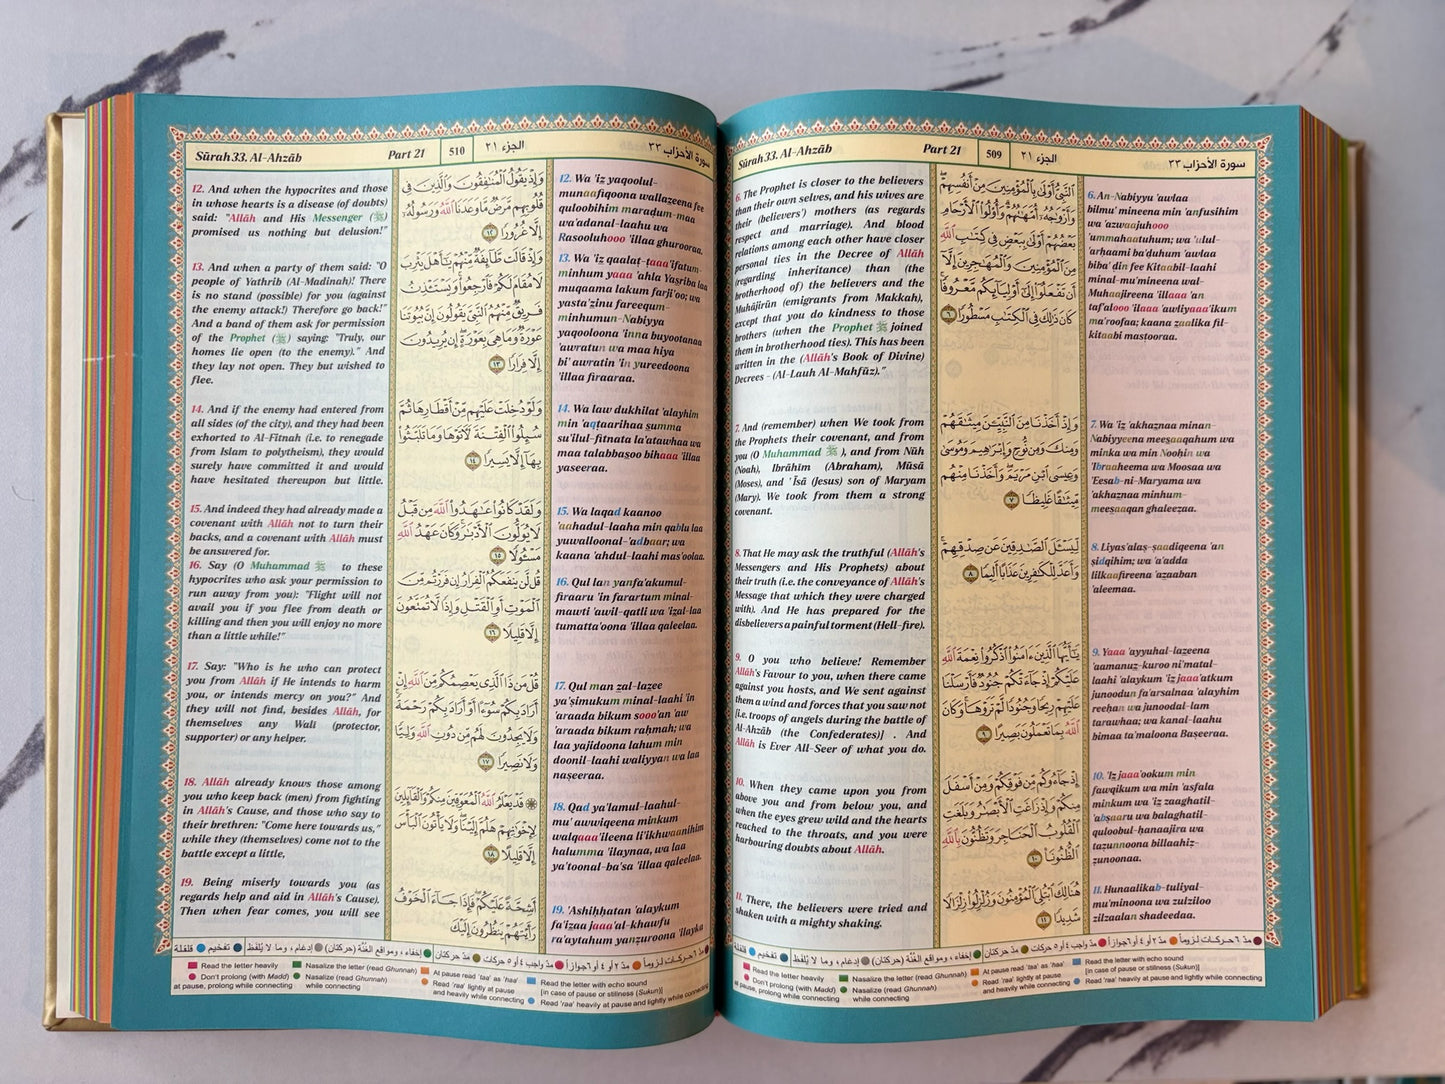 Sūrah 33. Al-Ahzāb
Part 21
509
الجزء ٢١
سورة الأحزاب ٣٣
6. The Prophet is closer to the believers
than their own selves, and his wives are
their (believers') mothers (as regards
respect and marriage). And blood
relations among each other have closer
personal ties in the Decree of Allāh
(regarding inheritance) than (the
brotherhood of) the believers and the
Muhājirūn (emigrants from Makkah),
except that you do kindness to those
brothers (when the Prophet ﷺ joined
them in brotherhood ties). This has been
written in the (Allāh's Book of Divine)
Decrees - (Al-Lauh Al-Mahfūz)."
7. And (remember) when We took from
the Prophets their covenant, and from
you (O Muhammad ﷺ), and from Nūh
(Noah), Ibrāhīm (Abraham), Mūsā
(Moses), and 'Īsā (Jesus) son of Maryam
(Mary). We took from them a strong
covenant.
8. That He may ask the truthful (Allāh's
Messengers and His Prophets) about
their truth (i.e. the conveyance of Allāh's
Message that which they were charged
with). And He has prepared for the
disbelievers a painful torment (Hell-fire).
9. O you who believe! Remember
Allāh's Favour to you, when there came
against you hosts, and We sent against
them a wind and forces that you saw not
[i.e. troops of angels during the battle of
Al-Ahzāb (the Confederates)] . And
Allāh is Ever All-Seer of what you do.
10. When they came upon you from
above you and from below you, and
when the eyes grew wild and the hearts
reached to the throats, and you were
harbouring doubts about Allāh.
11. There, the believers were tried and
shaken with a mighty shaking.
ٱلنَّبِىُّ أَوْلَىٰ بِٱلْمُؤْمِنِينَ مِنْ أَنفُسِهِمْ ۖ
وَأَزْوَٰجُهُۥٓ أُمَّهَٰتُهُمْ ۗ وَأُو۟لُوا۟ ٱلْأَرْحَامِ
بَعْضُهُمْ أَوْلَىٰ بِبَعْضٍ فِى كِتَٰبِ ٱللَّهِ
مِنَ ٱلْمُؤْمِنِينَ وَٱلْمُهَٰجِرِينَ إِلَّآ
أَن تَفْعَلُوٓا۟ إِلَىٰٓ أَوْلِيَآئِكُم مَّعْرُوفًا ۚ
كَانَ ذَٰلِكَ فِى ٱلْكِتَٰبِ مَسْطُورًا ٦
وَإِذْ أَخَذْنَا مِنَ ٱلنَّبِيِّۦنَ مِيثَٰقَهُمْ
وَمِنكَ وَمِن نُّوحٍ وَإِبْرَٰهِيمَ وَمُوسَىٰ
وَعِيسَى ٱبْنِ مَرْيَمَ ۖ وَأَخَذْنَا مِنْهُم
مِّيثَٰقًا غَلِيظًا ٧
لِّيَسْـَٔلَ ٱلصَّٰدِقِينَ عَن صِدْقِهِمْ ۚ
وَأَعَدَّ لِلْكَٰفِرِينَ عَذَابًا أَلِيمًا ٨
يَٰٓأَيُّهَا ٱلَّذِينَ ءَامَنُوا۟ ٱذْكُرُوا۟ نِعْمَةَ ٱللَّهِ
عَلَيْكُمْ إِذْ جَآءَتْكُمْ جُنُودٌ فَأَرْسَلْنَا
عَلَيْهِمْ رِيحًا وَجُنُودًا لَّمْ تَرَوْهَا ۚ وَكَانَ
ٱللَّهُ بِمَا تَعْمَلُونَ بَصِيرًا ٩
إِذْ جَآءُوكُم مِّن فَوْقِكُمْ وَمِنْ أَسْفَلَ
مِنكُمْ وَإِذْ زَاغَتِ ٱلْأَبْصَٰرُ وَبَلَغَتِ
ٱلْقُلُوبُ ٱلْحَنَاجِرَ وَتَظُنُّونَ بِٱللَّهِ
ٱلظُّنُونَا۠ ١٠
هُنَالِكَ ٱبْتُلِىَ ٱلْمُؤْمِنُونَ وَزُلْزِلُوا۟ زِلْزَالًا
شَدِيدًا ١١
6. An-Nabiyyu 'awlaa
bilmu'mineena min 'anfusihim
wa 'azwaajuhooo
'ummahaatuhum; wa 'ulul-
'arḥaami ba'ḍuhum 'awlaa
biba'ḍin fee Kitaabil-laahi
minal-mu'mineena wal-
Muhaajireena 'illaaa 'an
taf'alooo 'ilaaa 'awliyaaa'ikum
ma'roofaa; kaana zaalika fil-
kitaabi masṭooraa.
7. Wa 'iz 'akhaznaa minan-
Nabiyyeena meeṣaaqahum wa
minka wa min Nooḥin wa
'Ibraaheema wa Moosaa wa
'Eesab-ni-Maryama wa
'akhaznaa minhum-
meeṣaaqan ghaleezaa.
8. Liyas'alaṣ-ṣaadiqeena 'an
ṣidqihim; wa 'a'adda
lilkaafireena 'azaaban
'aleemaa.
9. Yaaa 'ayyuhal-lazeena
'aamanuz-kuroo ni'matal-
laahi 'alaykum 'iz jaaa'atkum
junoodun fa'arsalnaa 'alayhim
reeḥan wa junoodal-lam
tarawhaa; wa kanal-laahu
bimaa ta'maloona Baṣeeraa.
10. 'Iz jaaa'ookum min
fawqikum wa min 'asfala
minkum wa 'iz zaaghatil-
'abṣaaru wa balaghatil-
quloobul-ḥanaajira wa
taẓunnoona billaahiẓ-
ẓunoonaa.
11. Hunaalikab-tuliyal-
mu'minoona wa zulziloo
zilzaalan shadeedaa.
مدّ ٦ حركات لزوماً مدّ ٢ أو ٤ أو ٦ جوازاً مدّ واجب ٤ أو ٥ حركات مدّ حركتان إخفاء، ومواقع الغُنَّة (حركتان) إدغام، وما لا يُلفَظ تفخيم قلقلة
Read the letter heavily
Don't prolong (with Madd)
at pause, prolong while connecting
Nasalize the letter (read Ghunnah)
Nasalize (read Ghunnah)
while connecting
At pause read 'taa' as 'haa'
Read 'raa' lightly at pause
and heavily while connecting
Read the letter with echo sound
[in case of pause or stillness (Sukun)]
Read 'raa' heavily at pause and lightly while connecting
Sūrah 33. Al-Ahzāb
Part 21
510
الجزء ٢١
سورة الأحزاب ٣٣
12. And when the hypocrites and those
in whose hearts is a disease (of doubts)
said: "Allāh and His Messenger (ﷺ)
promised us nothing but delusion!"
13. And when a party of them said: "O
people of Yathrib (Al-Madinah)! There
is no stand (possible) for you (against
the enemy attack!) Therefore go back!"
And a band of them ask for permission
of the Prophet (ﷺ) saying: "Truly, our
homes lie open (to the enemy)." And
they lay not open. They but wished to
flee.
14. And if the enemy had entered from
all sides (of the city), and they had been
exhorted to Al-Fitnah (i.e. to renegade
from Islam to polytheism), they would
surely have committed it and would
have hesitated thereupon but little.
15. And indeed they had already made a
covenant with Allāh not to turn their
backs, and a covenant with Allāh must
be answered for.
16. Say (O Muhammad ﷺ to these
hypocrites who ask your permission to
run away from you): "Flight will not
avail you if you flee from death or
killing and then you will enjoy no more
than a little while!"
17. Say: "Who is he who can protect
you from Allāh if He intends to harm
you, or intends mercy on you?" And
they will not find, besides Allāh, for
themselves any Wali (protector,
supporter) or any helper.
18. Allāh already knows those among
you who keep back (men) from fighting
in Allāh's Cause, and those who say to
their brethren: "Come here towards us,"
while they (themselves) come not to the
battle except a little,
19. Being miserly towards you (as
regards help and aid in Allāh's Cause).
Then when fear comes, you will see
وَإِذْ يَقُولُ ٱلْمُنَٰفِقُونَ وَٱلَّذِينَ فِى
قُلُوبِهِم مَّرَضٌ مَّا وَعَدَنَا ٱللَّهُ وَرَسُولُهُۥٓ
إِلَّا غُرُورًا ١٢
وَإِذْ قَالَت طَّآئِفَةٌ مِّنْهُمْ يَٰٓأَهْلَ يَثْرِبَ
لَا مُقَامَ لَكُمْ فَٱرْجِعُوا۟ ۚ وَيَسْتَـْٔذِنُ
فَرِيقٌ مِّنْهُمُ ٱلنَّبِىَّ يَقُولُونَ إِنَّ بُيُوتَنَا
عَوْرَةٌ وَمَا هِىَ بِعَوْرَةٍ ۖ إِن يُرِيدُونَ
إِلَّا فِرَارًا ١٣
وَلَوْ دُخِلَتْ عَلَيْهِم مِّنْ أَقْطَارِهَا ثُمَّ
سُئِلُوا۟ ٱلْفِتْنَةَ لَـَٔاتَوْهَا وَمَا تَلَبَّثُوا۟
بِهَآ إِلَّا يَسِيرًا ١٤
وَلَقَدْ كَانُوا۟ عَٰهَدُوا۟ ٱللَّهَ مِن قَبْلُ
لَا يُوَلُّونَ ٱلْأَدْبَٰرَ ۚ وَكَانَ عَهْدُ ٱللَّهِ
مَسْـُٔولًا ١٥
قُل لَّن يَنفَعَكُمُ ٱلْفِرَارُ إِن فَرَرْتُم مِّنَ
ٱلْمَوْتِ أَوِ ٱلْقَتْلِ وَإِذًا لَّا تُمَتَّعُونَ
إِلَّا قَلِيلًا ١٦
قُلْ مَن ذَا ٱلَّذِى يَعْصِمُكُم مِّنَ ٱللَّهِ إِنْ
أَرَادَ بِكُمْ سُوٓءًا أَوْ أَرَادَ بِكُمْ رَحْمَةً ۚ
وَلَا يَجِدُونَ لَهُم مِّن دُونِ ٱللَّهِ وَلِيًّا
وَلَا نَصِيرًا ١٧
۞ قَدْ يَعْلَمُ ٱللَّهُ ٱلْمُعَوِّقِينَ مِنكُمْ وَٱلْقَآئِلِينَ
لِإِخْوَٰنِهِمْ هَلُمَّ إِلَيْنَا ۖ وَلَا يَأْتُونَ ٱلْبَأْسَ
إِلَّا قَلِيلًا ١٨
أَشِحَّةً عَلَيْكُمْ ۖ فَإِذَا جَآءَ ٱلْخَوْفُ
رَأَيْتَهُمْ يَنظُرُونَ إِلَيْكَ
12. Wa 'iz yaqoolul-
munaafiqoona wallazeena fee
quloobihim maraḍum-maa
wa'adanal-laahu wa
Rasooluhooo 'illaa ghurooraa.
13. Wa 'iz qaalaṭ-ṭaaa'ifatum-
minhum yaaa 'ahla Yaṣriba laa
muqaama lakum farji'oo; wa
yasta'zinu fareequm-
minhumun-Nabiyya
yaqooloona 'inna buyootanaa
'awratun wa maa hiya
bi'awratin 'in yureedoona
'illaa firaaraa.
14. Wa law dukhilat 'alayhim
min 'aqṭaarihaa ṣumma
su'ilul-fitnata la'atawhaa wa
maa talabbaṣoo bihaaa 'illaa
yaseeraa.
15. Wa laqad kaanoo
'aahadul-laaha min qablu laa
yuwalloonal-'adbaar; wa
kaana 'ahdul-laahi mas'oolaa.
16. Qul lan yanfa'akumul-
firaaru 'in farartum minal-
mawti 'awil-qatli wa 'izal-laa
tumatta'oona 'illaa qaleelaa.
17. Qul man zal-lazee
ya'ṣimukum minal-laahi 'in
'araada bikum sooo'an 'aw
'araada bikum raḥmah; wa
laa yajidoona lahum min
doonil-laahi waliyyan wa laa
naṣeeraa.
18. Qad ya'lamul-laahul-
mu'awwiqeena minkum
walqaaa'ileena li'ikhwaanihim
halumma 'ilaynaa, wa laa
ya'toonal-ba'sa 'illaa qaleelaa.
19. 'Ashiḥḥatan 'alaykum
fa'izaa jaaa'al-khawfu
ra'aytahum yanẓuroona 'ilayka
مدّ ٦ حركات لزوماً مدّ ٢ أو ٤ أو ٦ جوازاً مدّ واجب ٤ أو ٥ حركات مدّ حركتان إخفاء، ومواقع الغُنَّة (حركتان) إدغام، وما لا يُلفَظ تفخيم قلقلة
Read the letter heavily
Don't prolong (with Madd)
at pause, prolong while connecting
Nasalize the letter (read Ghunnah)
Nasalize (read Ghunnah)
while connecting
At pause read 'taa' as 'haa'
Read 'raa' lightly at pause
and heavily while connecting
Read the letter with echo sound
[in case of pause or stillness (Sukun)]
Read 'raa' heavily at pause and lightly while connecting